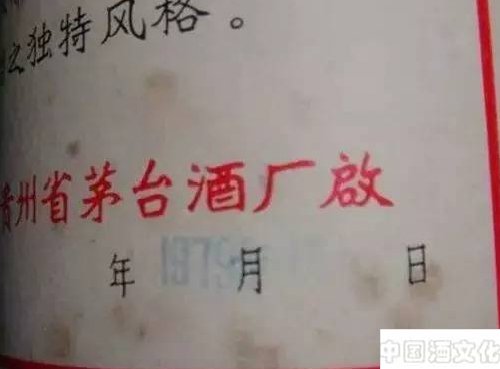 之独特风格。
贵州省茅台酒厂啟
年 月 日
中国酒文化